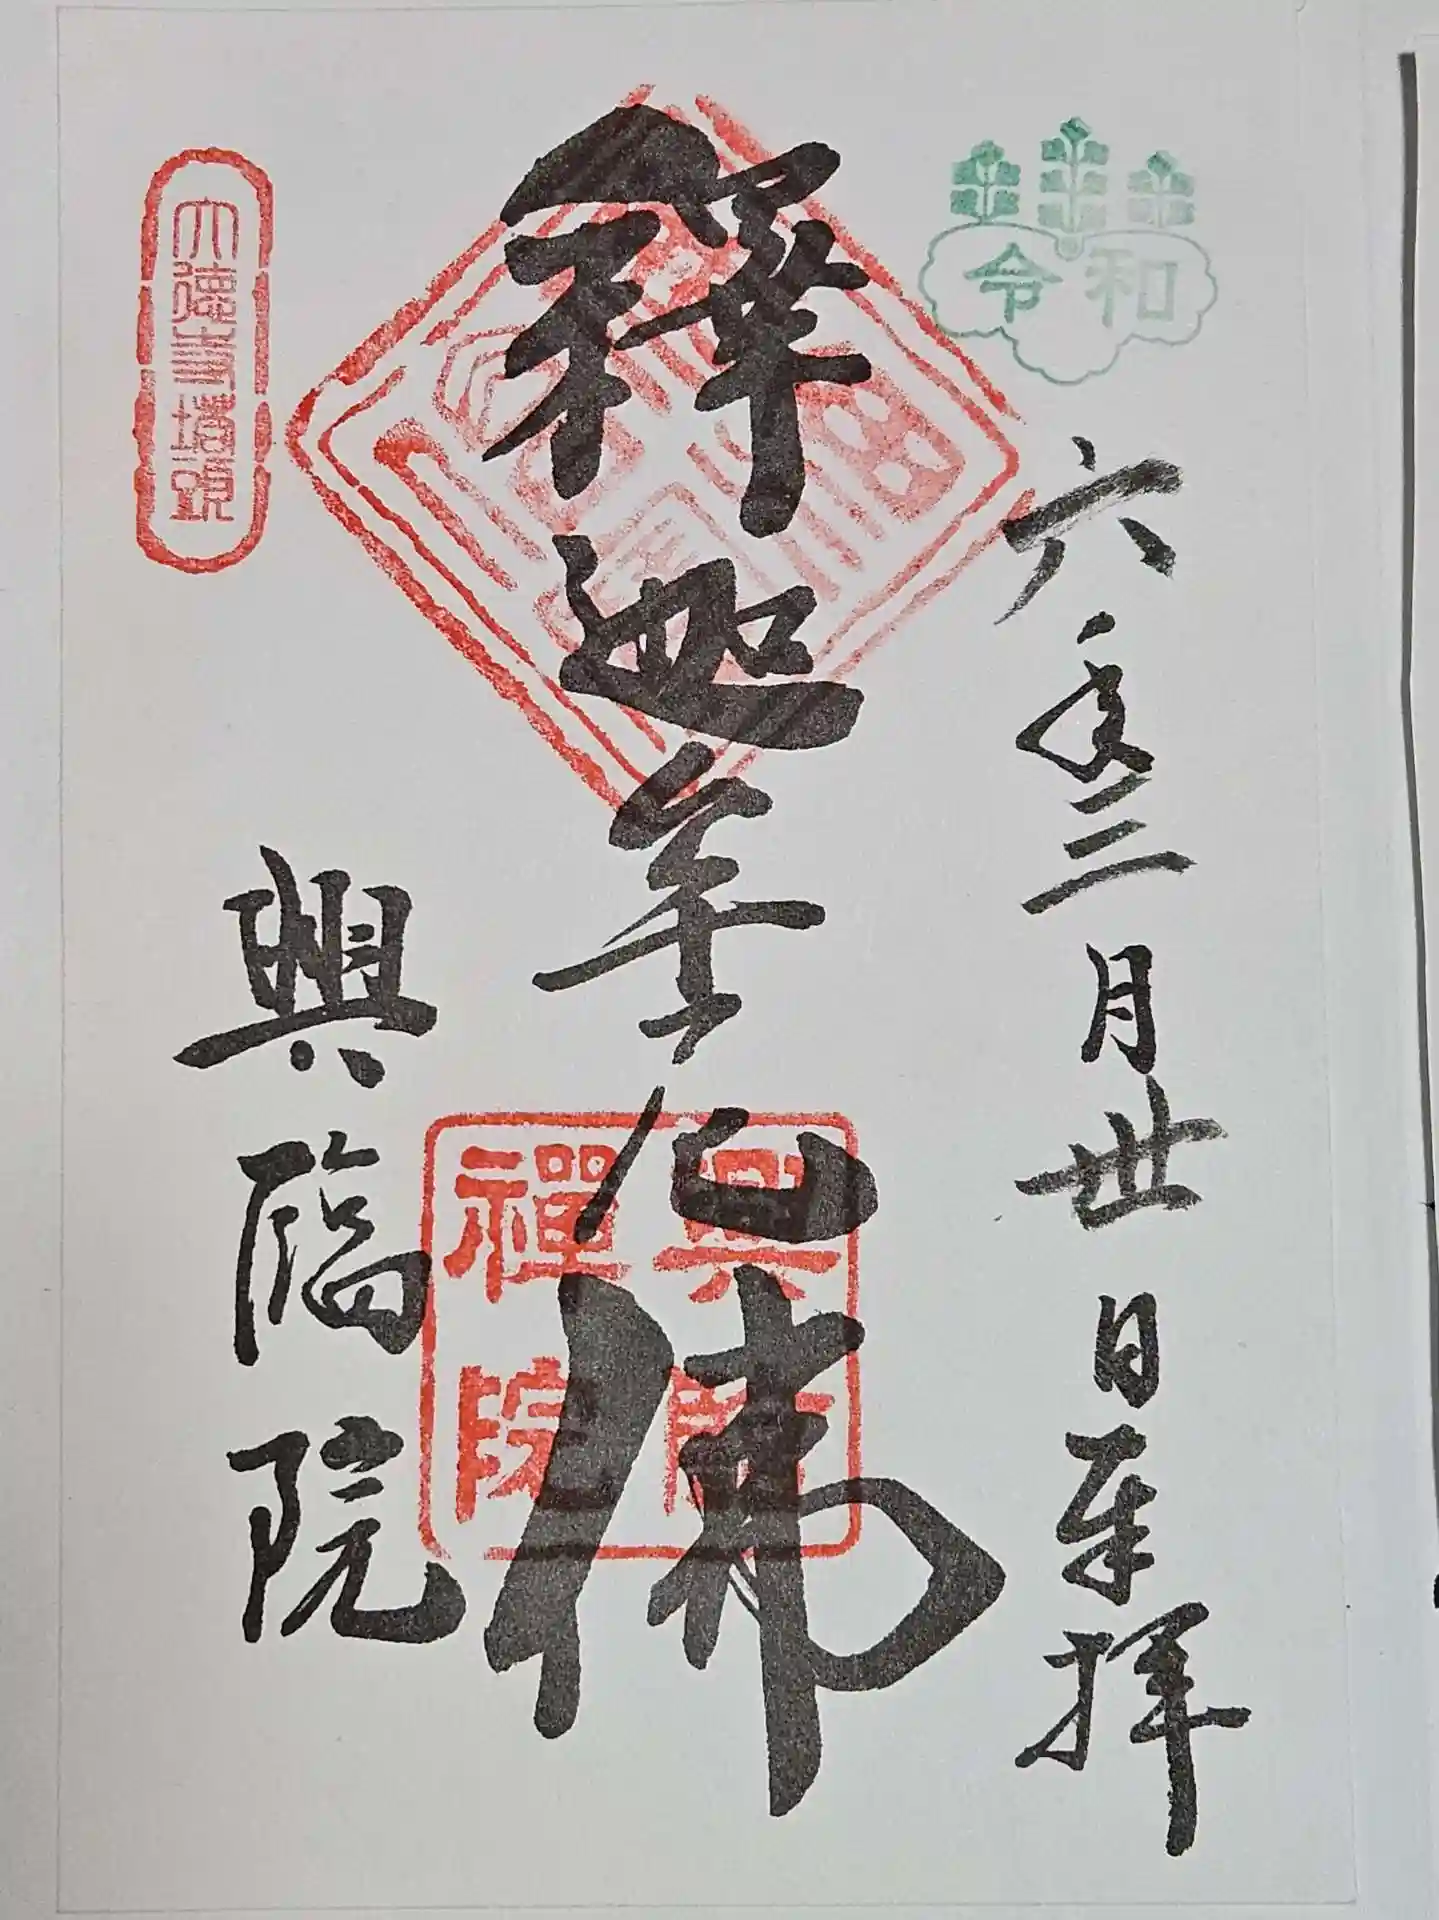 令和
六年三月卅日奉拝
釋迦牟尼佛
興臨
禪院
大徳寺塔頭
興臨院